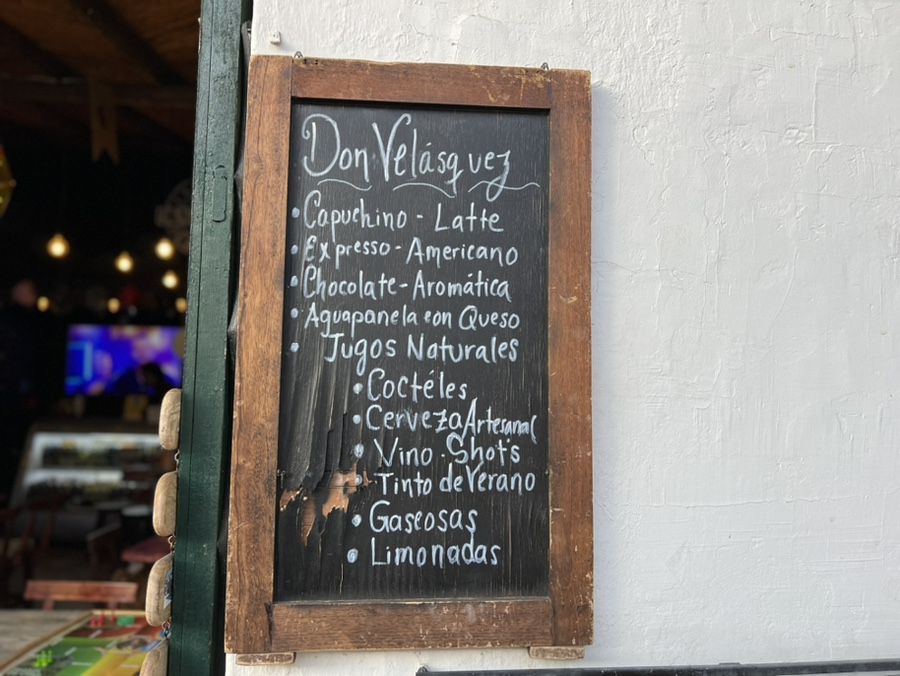 Don Velásquez
• Capuchino - Latte
• Expresso - Americano
• Chocolate - Aromática
• Aguapanela con Queso
• Jugos Naturales
• Coctéles
• Cerveza Artesanal
• Vino - Shot's
• Tinto de Verano
• Gaseosas
• Limonadas